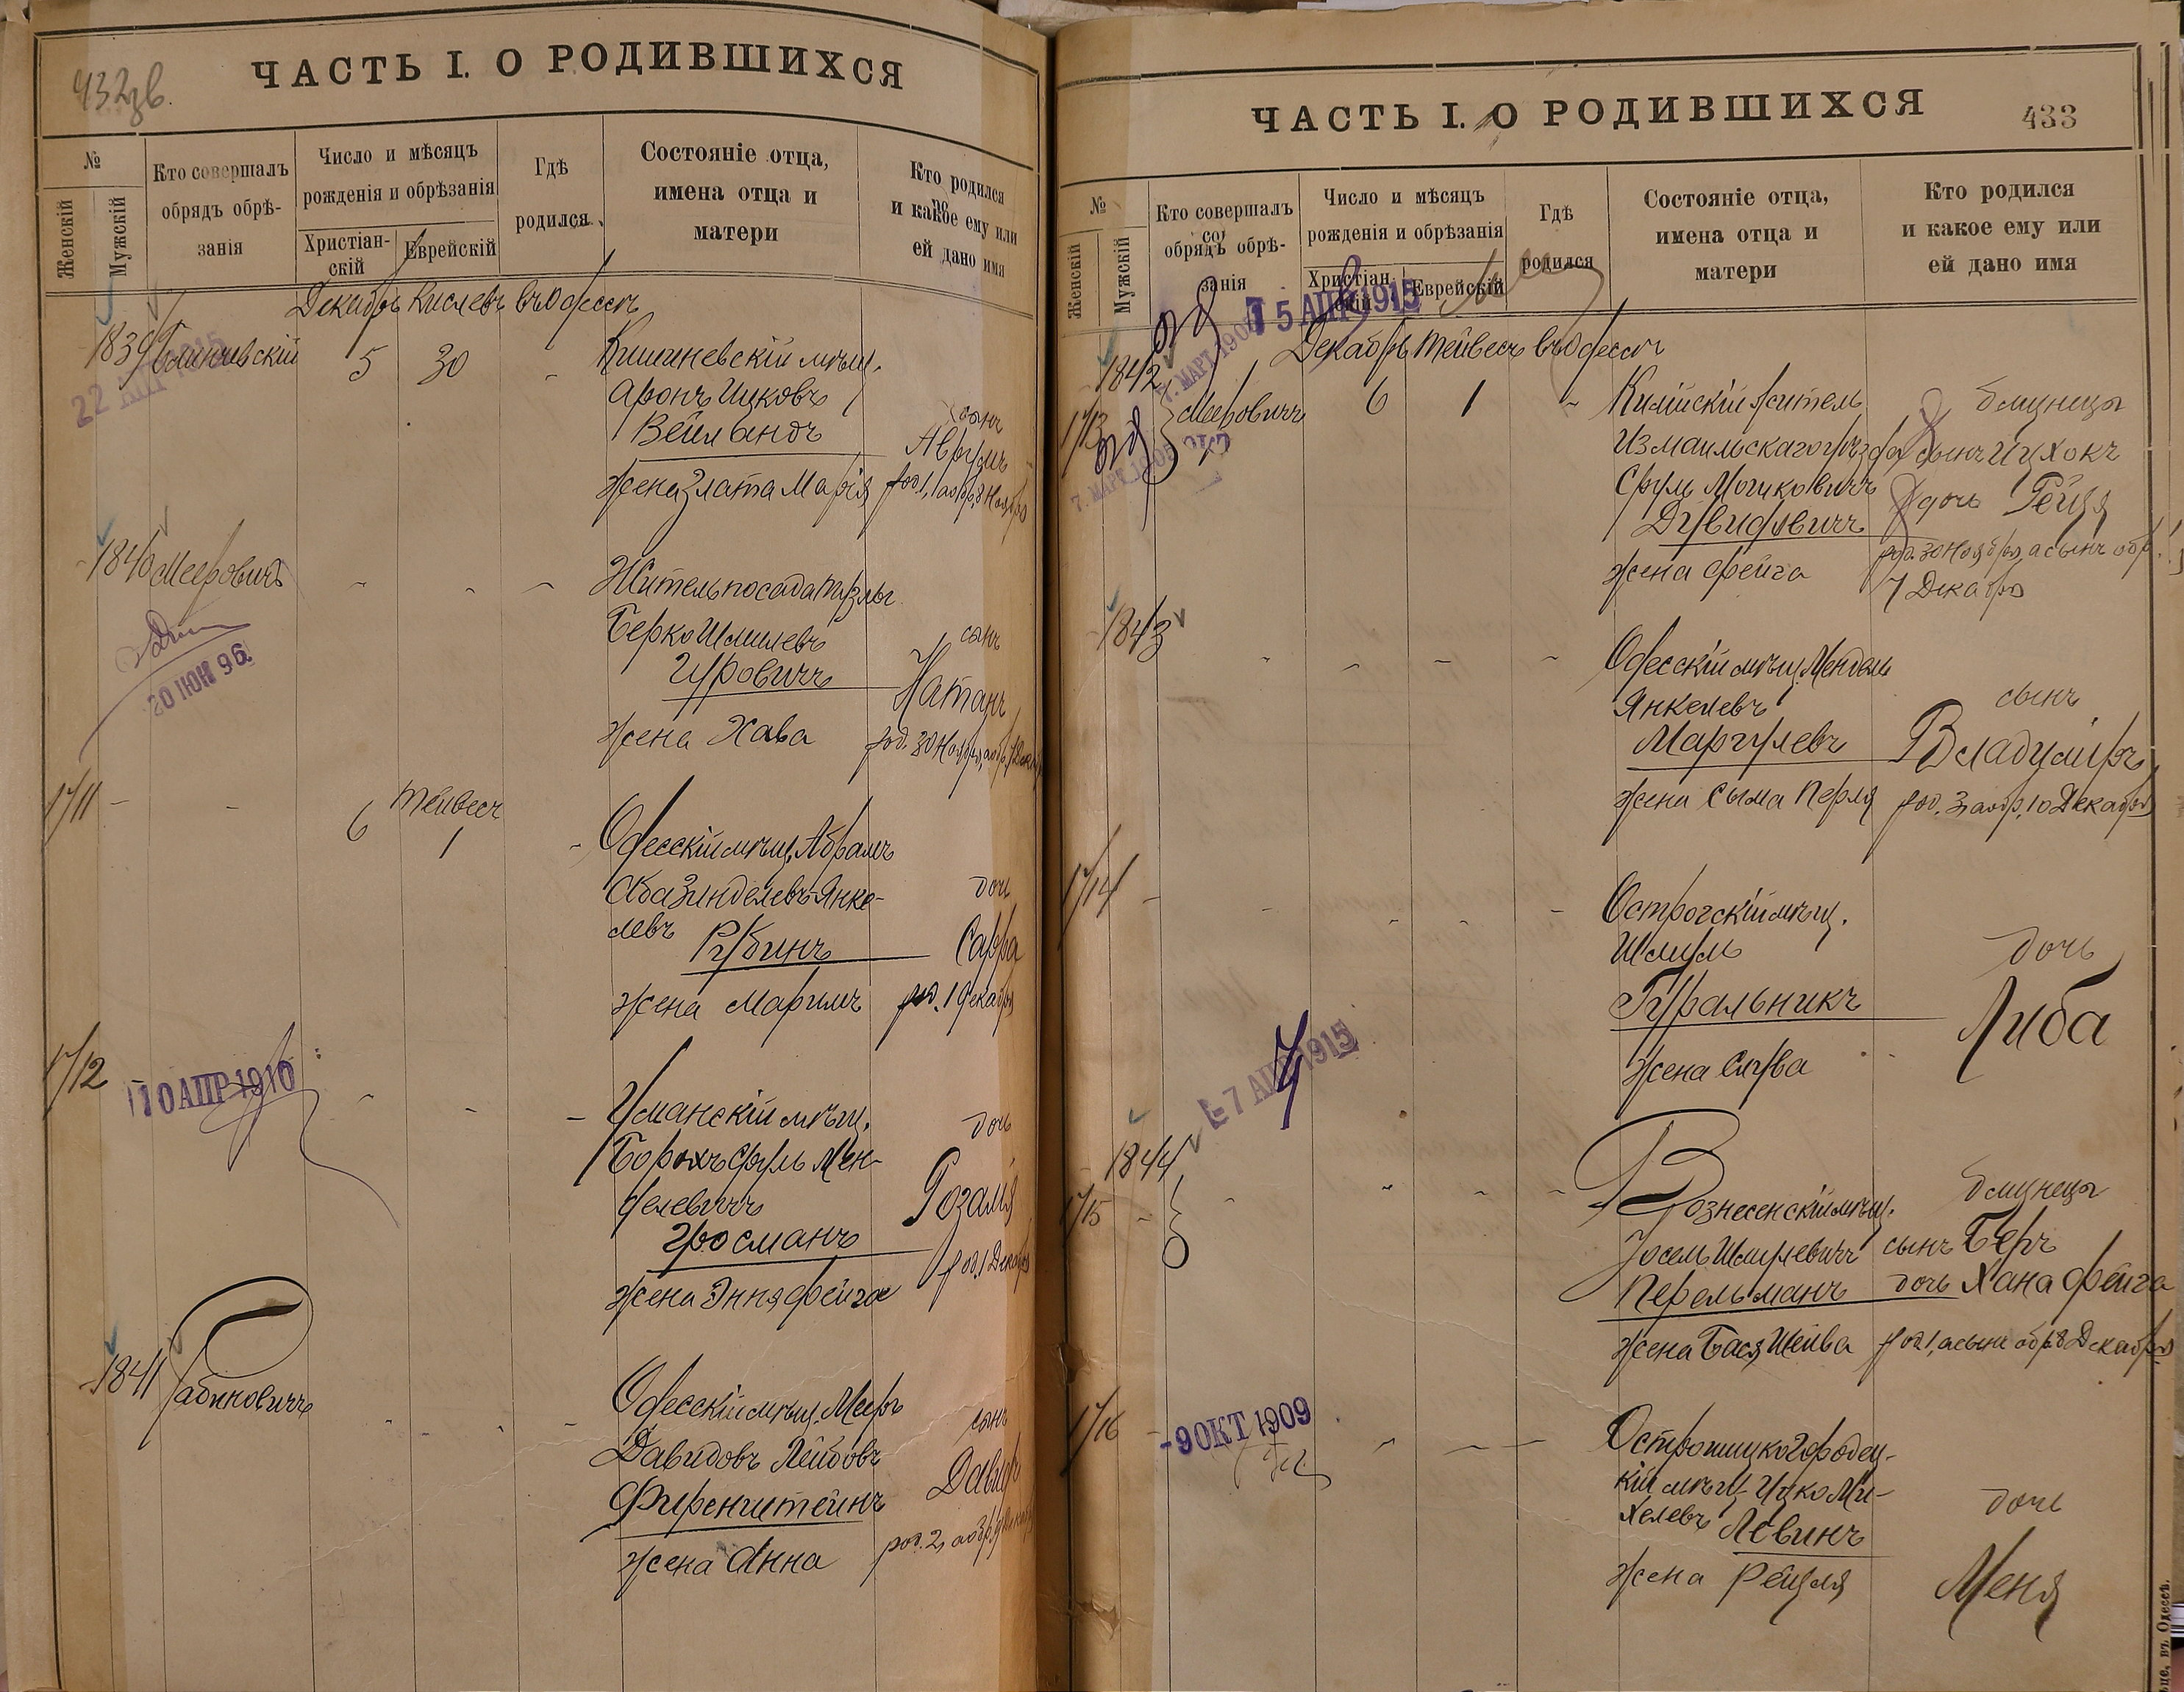 432 зв.
ЧАСТЬ I. О РОДИВШИХСЯ
№
Женскій
Мужскій
Кто совершалъ
обрядъ обрѣ-
занія
Число и мѣсяцъ
рожденія и обрѣзанія
Христіан-
скій
Еврейскій
Гдѣ
родился
Состояніе отца,
имена отца и
матери
Кто родился
и какое ему или
ей дано имя
Декабрь Кислевъ въ Одессѣ
1839
5 30
22 АПР 1915
Кишиневскій мѣщ.
Аронъ Ицковъ
Вейланд
сынъ
Аврумъ
жена Злата Марія
род. 1, а обр. 8 Ноября
1840 Мееровичъ
Житель посада Тузлы
Берко Шмилевъ
Гуровичъ
сынъ
Натанъ
жена Хава
род. 30 Ноября, а обр. 7 Декаб.
20 ІЮН 96
1711
6
Тейвесъ
1
Одесскій мѣщ. Абрамъ
Аба Зинделевъ-Янке-
левъ Рубинъ
дочь
Сарра
жена Маримъ
род. 1 Декабря
1712
10 АПР 1910
Уманскій мѣщ.
Борохъ Сруль Мен-
делевичъ
Гросманъ
дочь
Розалія
жена Эння Фейга
род. 1 Декабря
1841 Рабиновичъ
Одесскій мѣщ. Меръ
Давидовъ Лейбовъ
Фиренштейнъ
сынъ
Давидъ
жена Анна
род. 2, а обр. 9 Декабря
ЧАСТЬ I. О РОДИВШИХСЯ
433
№
Женскій
Мужскій
Кто совершалъ
обрядъ обрѣ-
занія
Число и мѣсяцъ
рожденія и обрѣзанія
Христіан-
скій
Еврейскій
Гдѣ
родился
Состояніе отца,
имена отца и
матери
Кто родился
и какое ему или
ей дано имя
5 АПР 1915
7. МАРТ 190
Декабрь Тейвесъ въ Одессѣ
1842
1713
Мееровичъ
6 1
7. МАРТ 1905
Килійскій житель
Измаильскаго уѣзда
Сруль Мошковичъ
Дувидовичъ
жена Фейга
близнецы
сынъ Ицхокъ
дочь Рейзя
род. 30 Ноября, а сынъ обр.
7 Декабря
1843
Одесскій мѣщ. Мендель
Янкелевъ
Маргулевъ
сынъ
Владуміръ
жена Сыма Перля
род. 3, а обр. 10 Декабря
1714
Острогскій мѣщ.
Шмуль
Гуральникъ
дочь
Либа
жена Слува
7 АПР 1915
1844
1715
Вознесенскій мѣщ.
Іосель Шмулевичъ
Перельманъ
жена Бася Шейва
близнецы
сынъ Беръ
дочь Хана Фейга
род. 1, а сынъ обр. 8 Декабря
1716
-9 ОКТ 1909
Острошицко Городец-
кій мѣщ. Ицко Ми-
хелевъ Левинъ
дочь
Меня
жена Рейзля
въ Одессѣ.